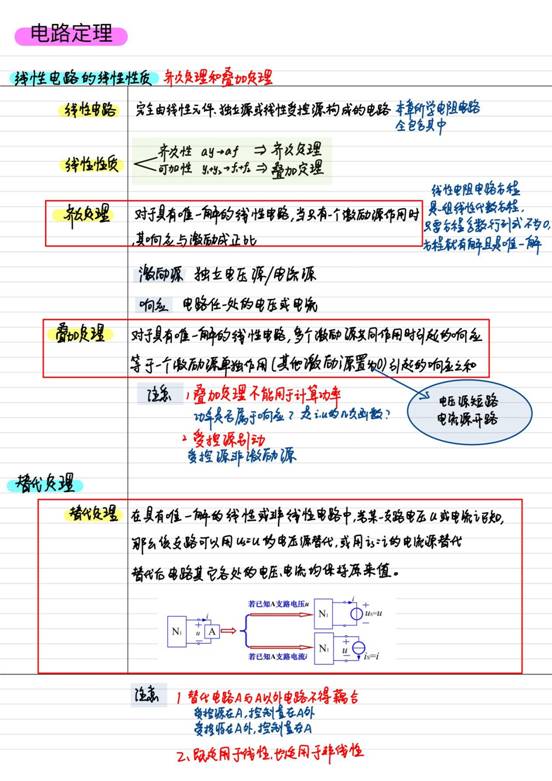 电路定理
线性电路的线性性质 齐次定理和叠加定理
线性电路 完全由线性元件、独立源或线性受控源构成的电路 本章所学电阻电路
全包含其中
线性性质 齐次性 ay→af ⇒ 齐次定理
可加性 y₁+y₂→f₁+f₂ ⇒ 叠加定理
线性电阻电路方程
是一组线性代数方程,
只要方程系数行列式不为0,
方程就有解且是唯一解
齐次定理 对于具有唯一解的线性电路,当只有一个激励源作用时
,其响应与激励成正比
激励源 独立电压源/电流源
响应 电路任一处的电压或电流
叠加定理 对于具有唯一解的线性电路,多个激励源共同作用时引起的响应
等于一个激励源单独作用(其他激励源置为0)引起的响应之和
注意 1,叠加定理不能用于计算功率
功率是否属于响应?是i.u的几次函数?
电压源短路
电流源开路
2.受控源别动
受控源非激励源
替代定理
替代定理 在具有唯一解的线性或非线性电路中,若某一支路电压u或电流i已知,
那么该支路可以用us=u的电压源替代,或用is=i的电流源替代
替代后电路其它各处的电压、电流均保持原来值。
若已知A支路电压u
N₁ i + u − A
N₁ i + − us=u
若已知A支路电流i
N₁ + u − is=i
注意 1 替代电路A与A以外电路不得耦合
受控源在A,控制量在A外
受控源在A外,控制量在A
2、既适用于线性,也适用于非线性